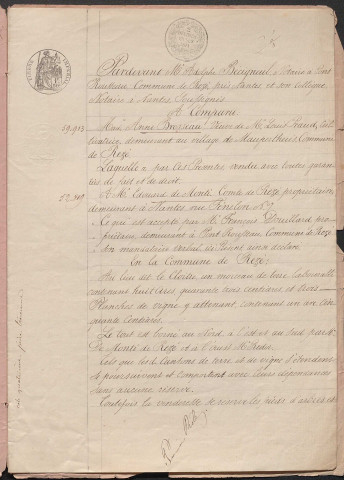 Pardevant Me Adolphe Béugneul, notaire à Pont
Rousseau Commune de Rezé, près Nantes et son collègue
Notaire à Nantes, Soussignés
A Comparu:
29,913 Mme Anne Brosseau Veuve de Mr. Louis Praud, cul-
tivatrice, demeurant au village de Maupertuis, Commune
de Rezé
Laquelle a par ces Présentes vendu avec toutes garan-
ties de fait et de droit.
A Mr. Edouard de Monti Comte de Rezé, propriétaire,
demeurant à Nantes, rue Fénélon No 9
Ce qui est accepté par Mr. François Douillard pro-
priétaire, demeurant à Pont Rousseau Commune de Rezé
son mandataire verbal
En la Commune de Rezé:
Au lieu dit le un morceau de terre labourable
contenant huit ares, quarante trois centiares et trois
Planches de vigne y attenant, contenant un are cin-
quante centiares.
Le tout est borné au Nord, à l'est et au Sud par Mr.
De Monti de Rezé et à l'ouest
Tels que lesdits Cantons de terre et de vigne s'étendent
se poursuivent et comportent avec leurs dépendances
sans aucune réserve.
Toutefois la venderesse se réserve les pieds d'arbres et